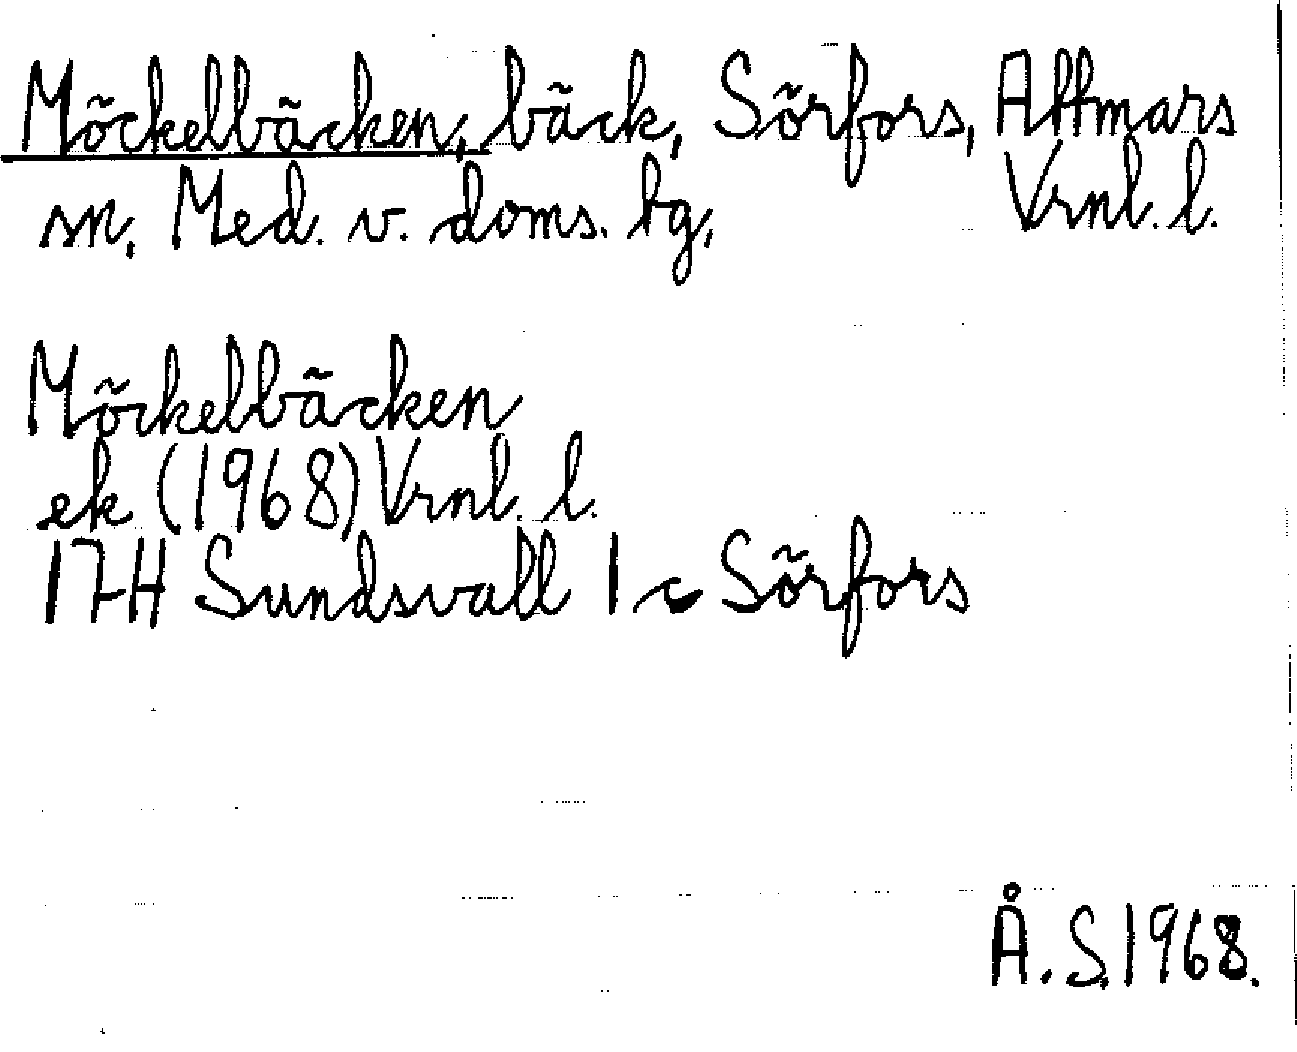 Möckelbäcken, bäck, Sörfors, Attmars
sn, Med. v. doms. tg, Vrnl. l.
Möckelbäcken
ek (1968) Vrnl. l.
17H Sundsvall 1 c Sörfors
Å. S. 1968.